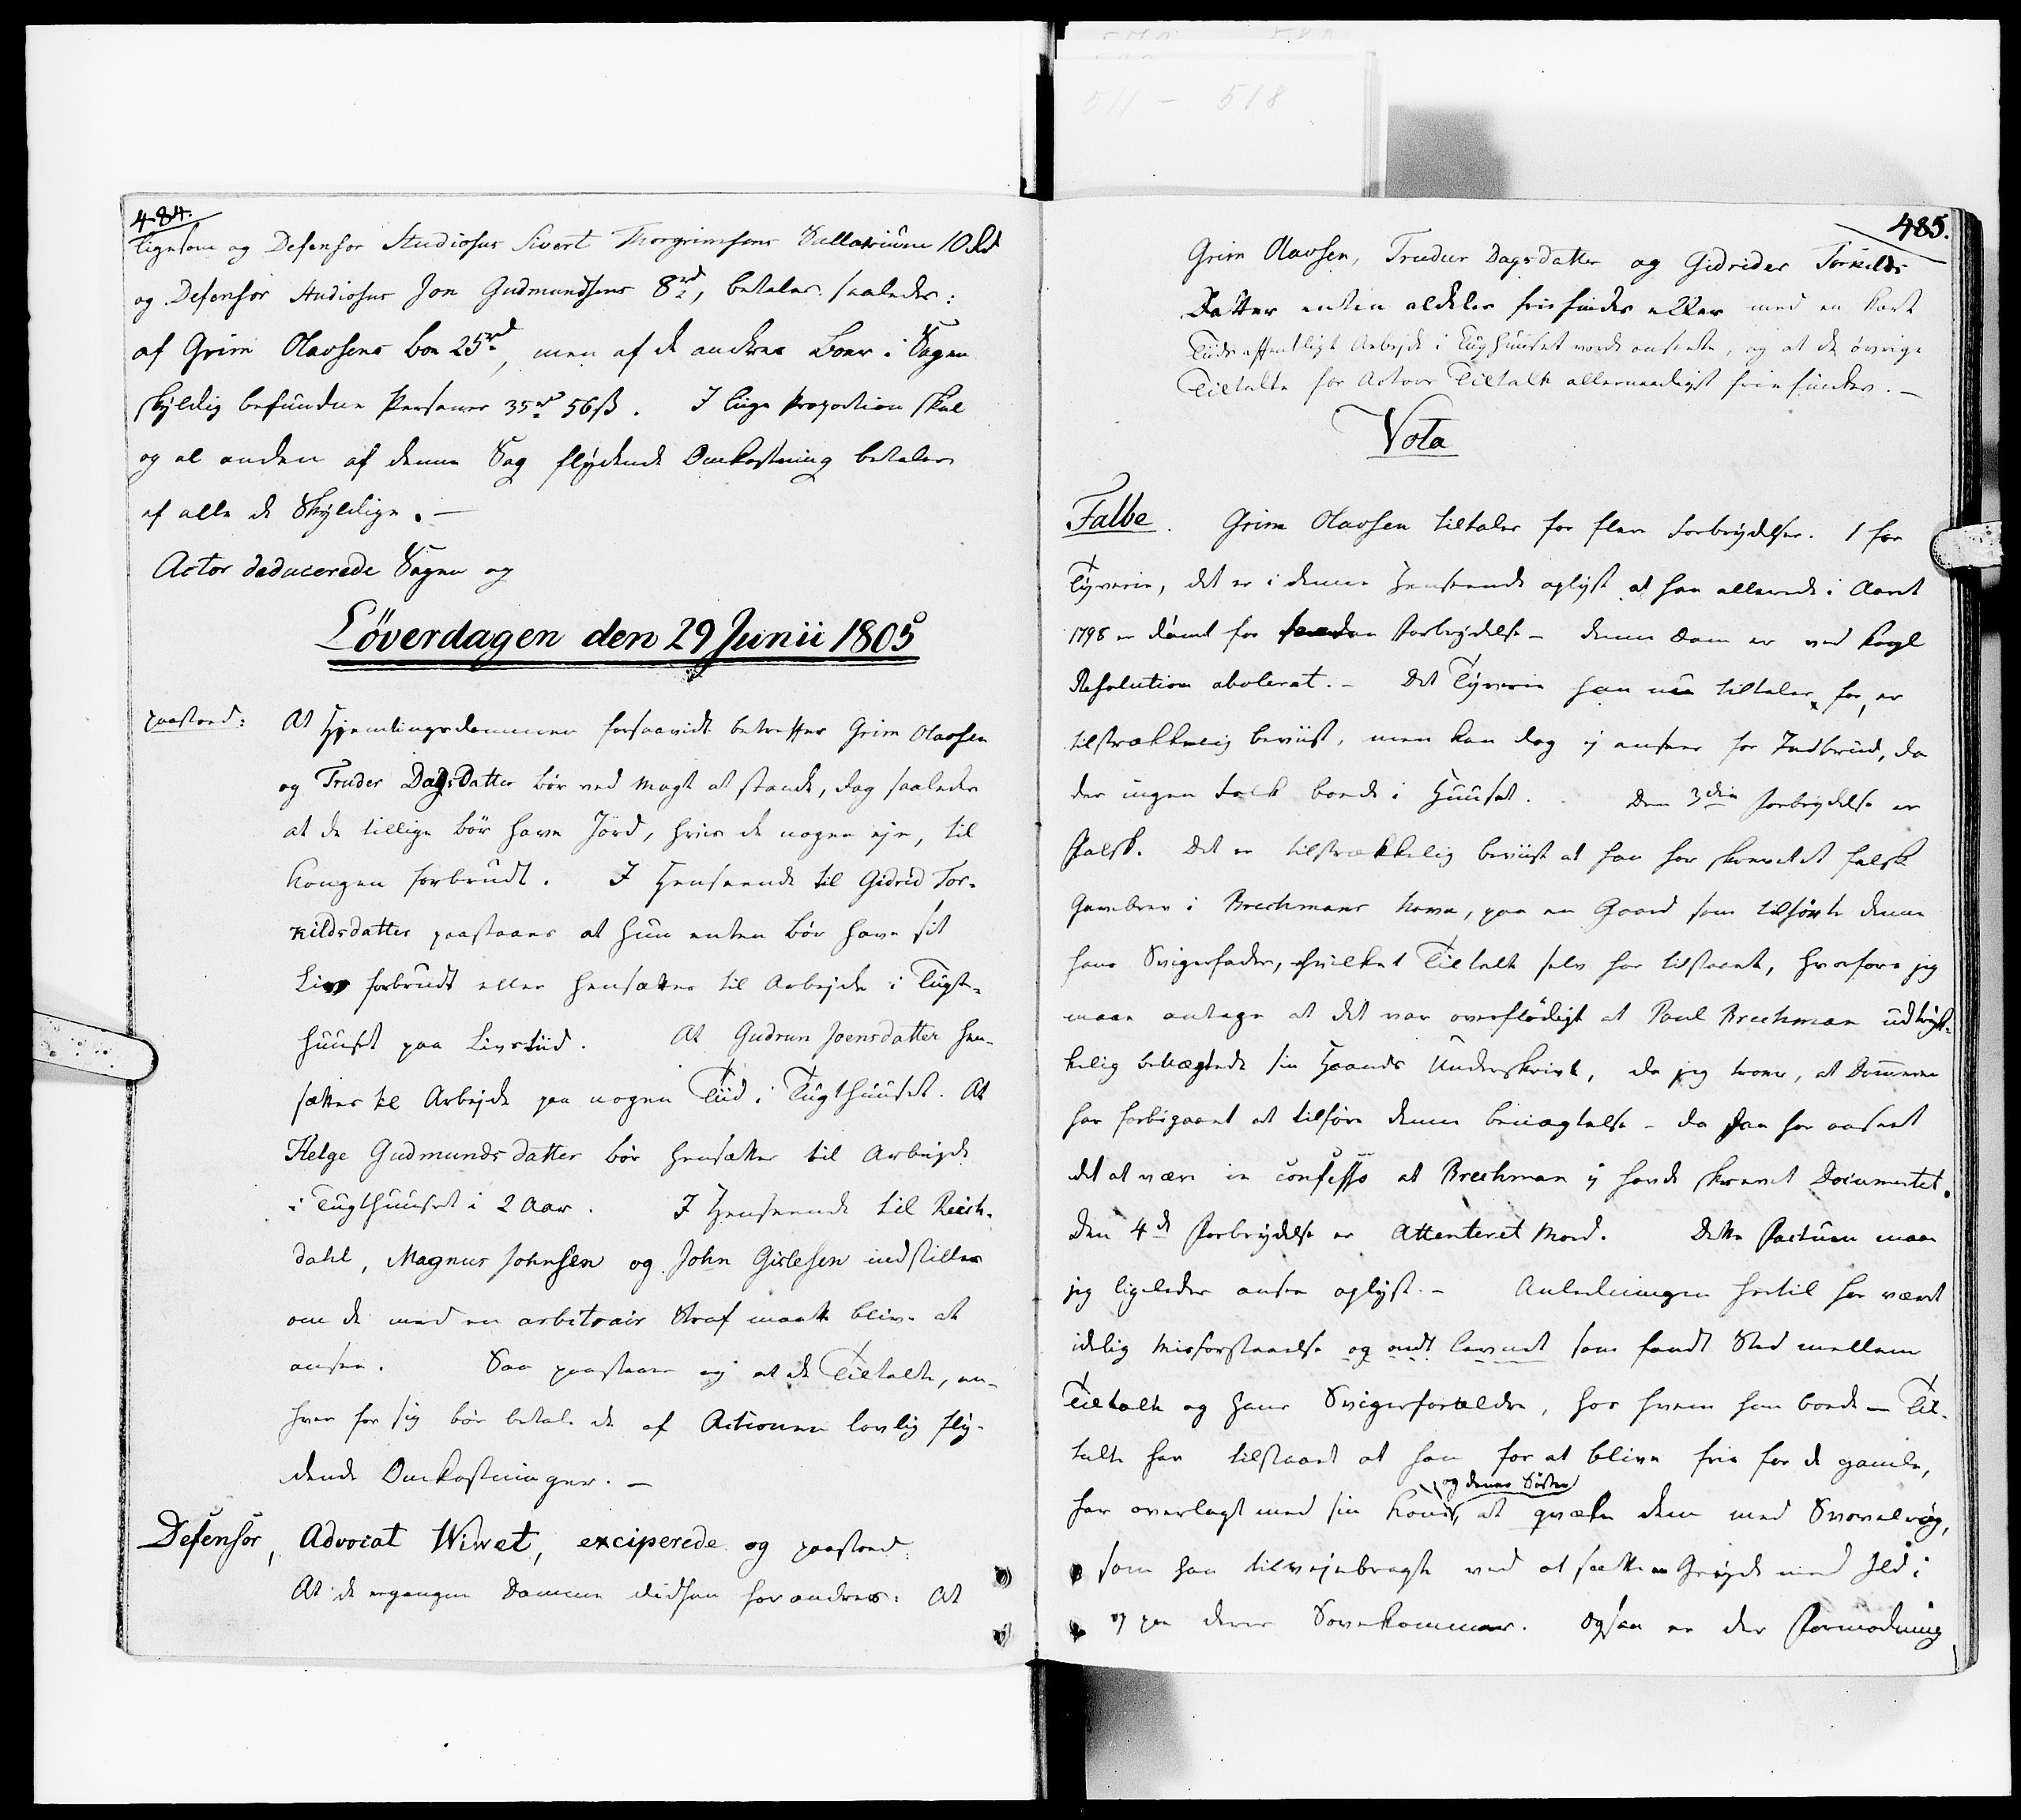 484.
ligesom og Defensor Studiosus Sivert Thorgrimsens Sallarium 10 Rd
og Defensor Studiosus Jon Gudmundsens 8 rd, betales saaledes:
af Grim Olavsens Boe 25 rd, men af de andres Boer i Sagen
skyldig befundne Personer 35 rd 56 ß. I liige Proportion skal
og al anden af denne Sag flydende Omkostning betales
af alle de Skyldige. —
Actor deducerede Sagen og
Løverdagen den 29 Junii 1805
paastod: At Hjemtingsdommen forsaavidt betreffer Grim Olavsen
og Truder Dagsdatter bør ved Magt at stande, dog saaledes
at de tillige bør have Jord, hvis de nogen eje, til
Kongen forbrudt. I Henseende til Gidrid Tor-
kildsdatter paastaaes at hun enten bør have sit
Liv forbrudt eller hensættes til Arbejde i Tugt-
huuset paa Livstiid. At Gudrun Joensdatter hen-
sættes til Arbejde paa nogen Tiid i Tugthuuset. At
Helge Gudmunds datter bør hensættes til Arbejde
i Tugthuuset i 2 Aar. I Henseende til Reich-
dahl, Magnus Johnsen og John Gislesen indstilles
om de med en arbitrair Straf maatte blive at
ansee. Saa paastaaes og at de Tiltalte, en-
hver for sig bør betale de af Actionen lovlig fly-
dende Omkostninger. —
Defensor, Advocat Wivet, exciperede og paastod:
At de ergangne Domme didhen forandres: At
485.
Grim Olavsen, Trudur Dagsdatter og Gidrides Torkilds
Datter enten aldeles friefindes eller med en kort
Tiids offentligt Arbejde i Tugthuuset vorde ansete, og at de øvrige
Tiltalte for Actors Tiltale allernaadigst friefindes. —
Vota
Falbe. Grim Olavsen tiltales for flere Forbrydelser. 1 for
Tyverie, det er i denne Henseende oplyst at han allerede i Aaret
1798 er dømt for saadan Forbrydelse – denne Dom er ved Kongl
Resolution aboleret. – Det Tyverie han nu tiltales for, er
tilstrækkelig beviist, men kan dog ej ansees for Indbrud, da
der ingen Folk boede i Huuset. Den 3die Forbrydelse er
Falsk. Det er tilstrækkelig beviist at han har skrevet et falsk
Gavebrev i Brechmans Navn, paa en Gaard som tilhørte denne
hans Svigerfader, hvilket Tiltalte selv har tilstaaet, hvorfore jeg
maae antage at det var overflødigt at Poul Brechman udtryk-
kelig benægtede sin Haands Underskrivt, da jeg troer, at Dommeren
har forbigaaet at tilføre denne benægtelse – da han har anseet
det at være in confesso at Brechman ej havde skrevet Documentet.
Den 4de Forbrydelse er Attenteret Mord. Dette Factum maae
jeg ligeledes ansee oplyst. – Anledningen hertil har været
idelig Misforstaaelse og ondt Levnet som fandt Sted mellem
Tiltalte og hans Svigerforældre, hos hvem han boede – Til-
talte har tilstaaet at han for at blive frie for de gamle,
har overlagt med sin Kone, og denne Søster at qvæle dem med Svovelrøg,
som han tilvejebragte ved at sætte en Gryde med Ild i
og paa deres Sovekammer. Ogsaa er der Formodning